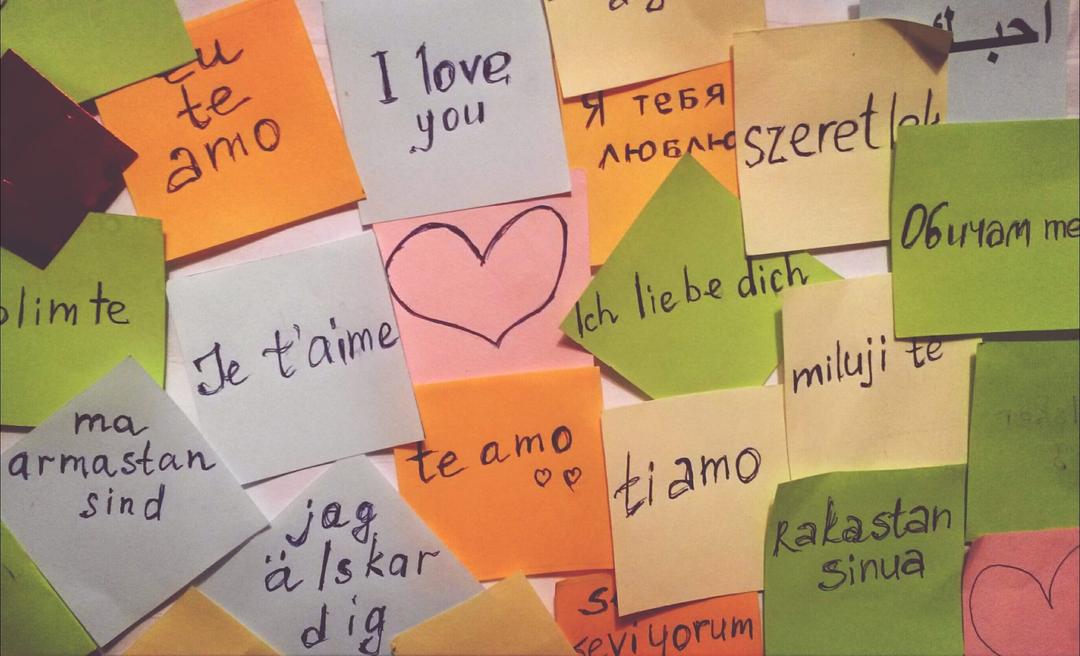 Eu
te
amo
I love
you
Я тебя
люблю
szeretlek
Обичам те
Ich liebe dich
olim te
Je t'aime
miluji te
ma
armastan
sind
te amo
ti amo
jag
älskar
dig
Rakastan
sinua
seviyorum